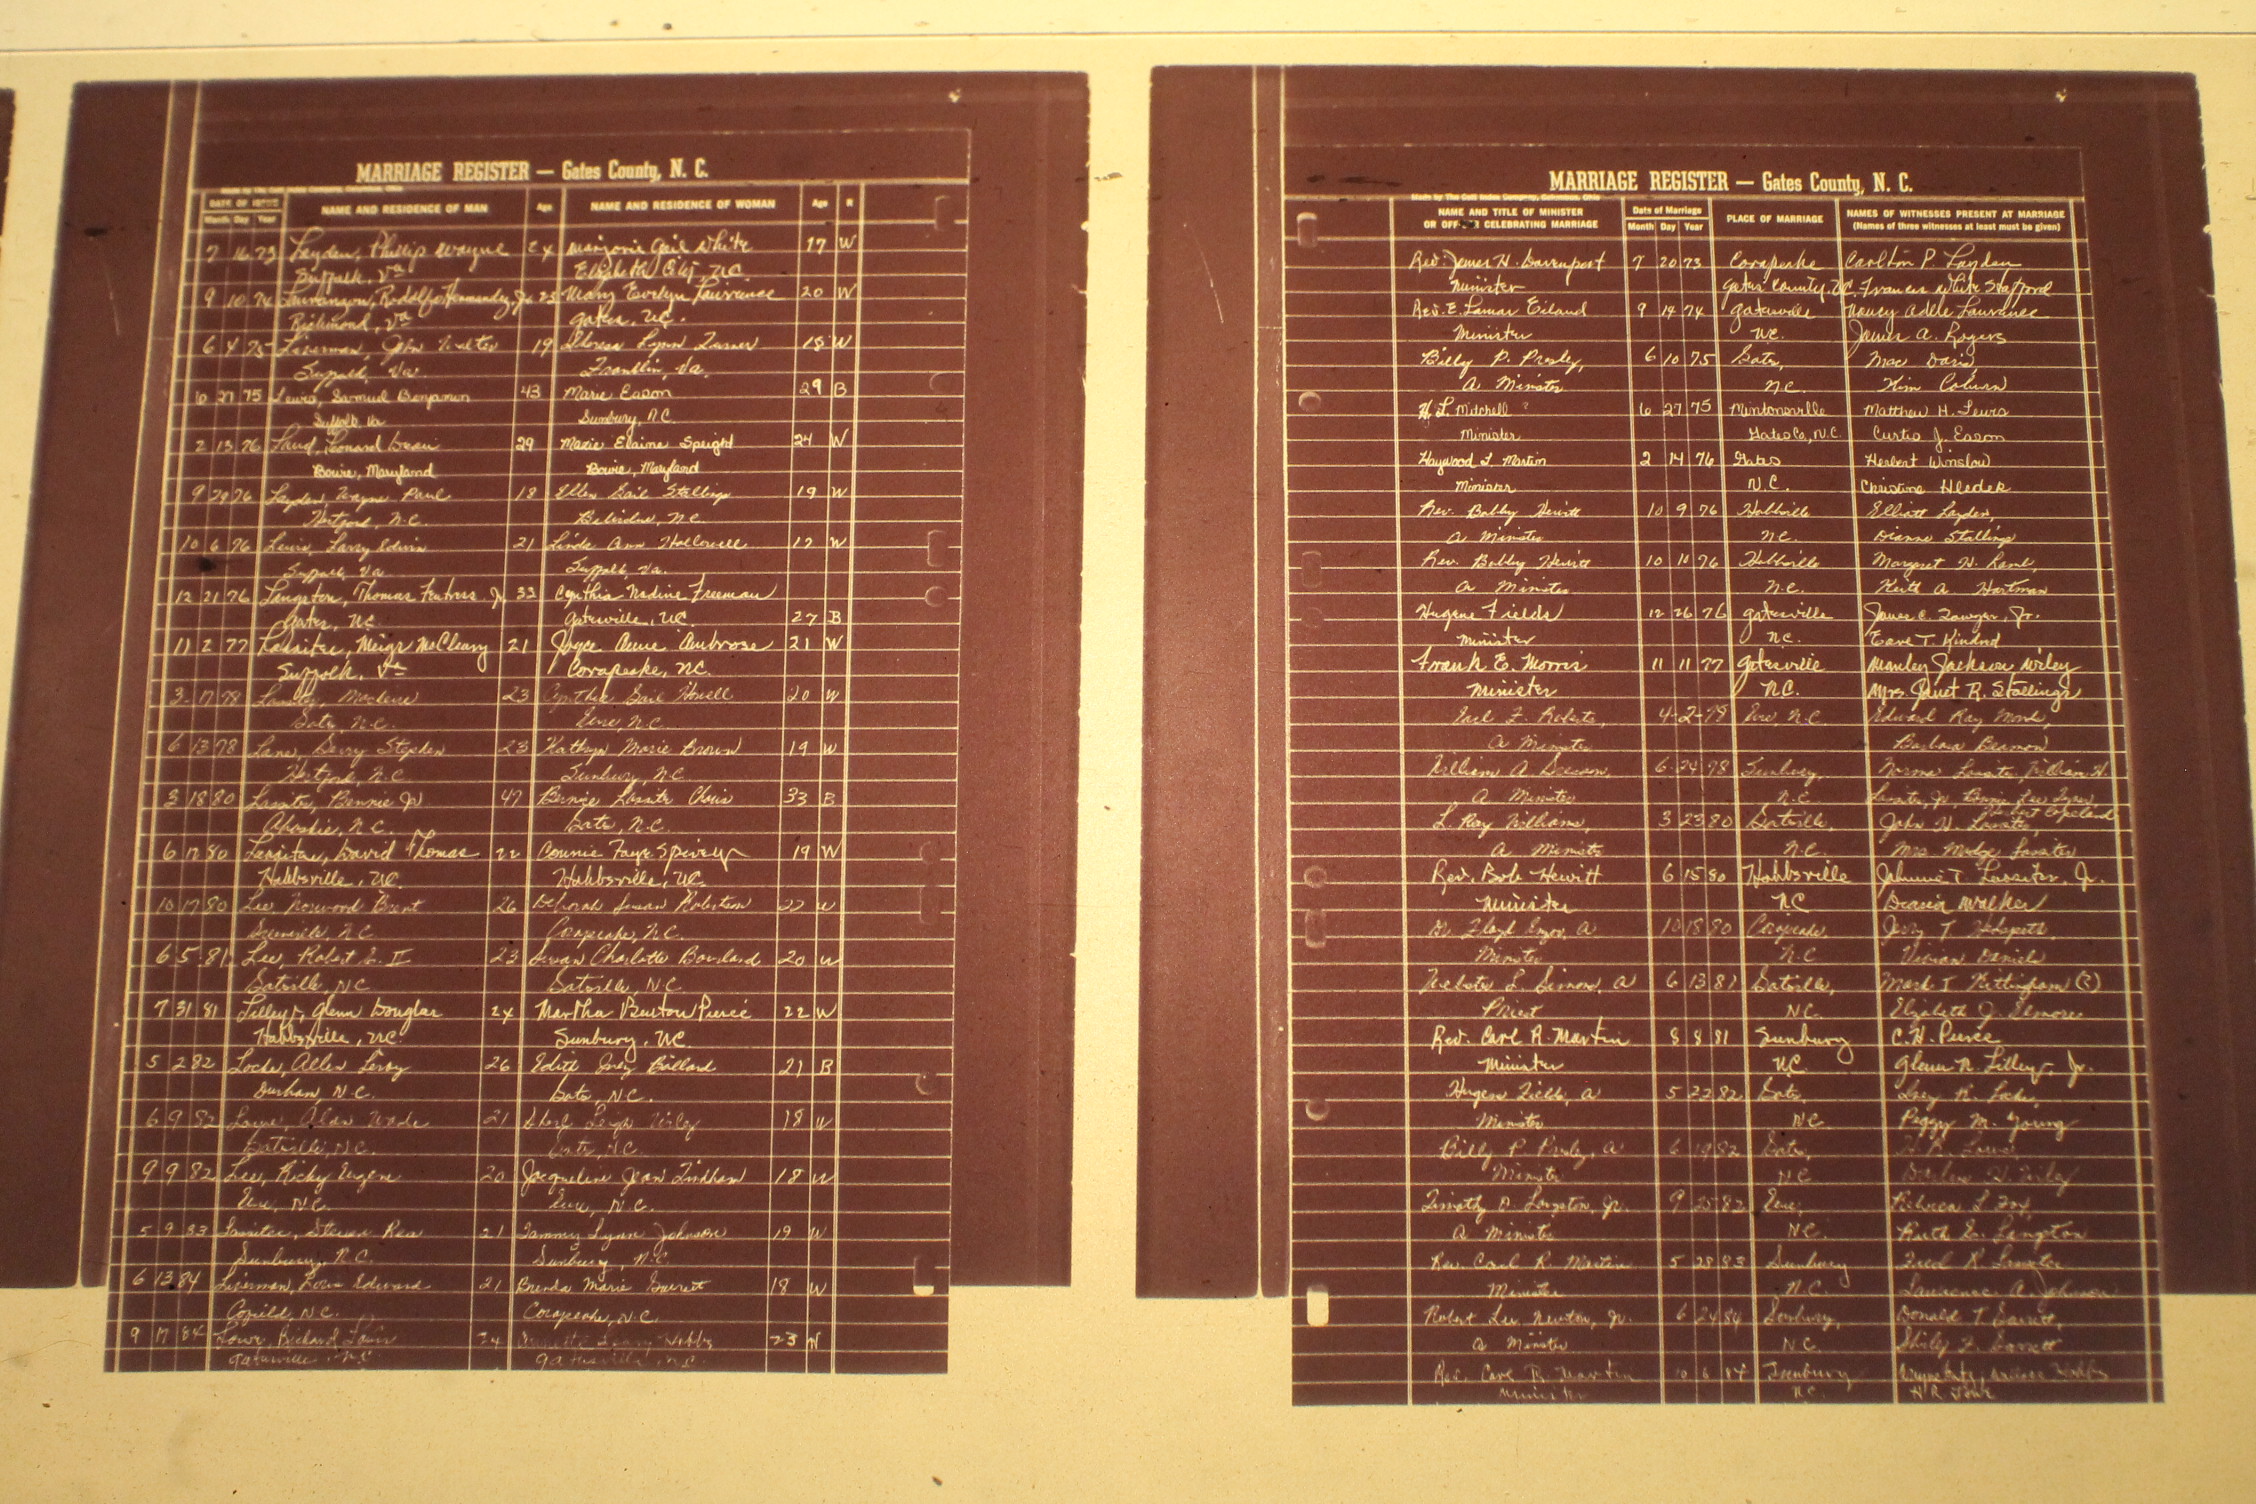 MARRIAGE REGISTER — Gates County, N. C.
DATE OF ISSUE
Month Day Year
NAME AND RESIDENCE OF MAN
Age
NAME AND RESIDENCE OF WOMAN
Age
R
7 16 73 Layden, Phillip Wayne 24 Marjorie Gail White 17 W
Suffolk, Va Elizabeth City, NC
9 10 74 Rodolfo Hernandez, Jr 23 Mary Evelyn Lawrence 20 W
Richmond, Va Gates, NC.
6 4 75 Liverman, John Walter 19 Theresa Lynn Turner 18 W
Suffolk, Va. Franklin, Va.
6 27 75 Lewis, Samuel Benjamin 43 Marie Eason 29 B
Suffolk Va Sunbury, N.C.
2 13 76 Land, Leonard Dean 29 Marie Elaine Speight 24 W
Bowie, Maryland Bowie, Maryland
9 28 76 Layden, Wayne Paul 18 Ellen Gail Stallings 19 W
Hertford, N.C. Belvidere, N.C.
10 6 76 Lewis, Larry Edwin 21 Linda Ann Hollowell 17 W
Suffolk, Va Suffolk, Va.
12 21 76 Langston, Thomas Jr. 33 Cynthia Nadine Freeman
Gates, NC Gatesville, NC. 27 B
11 2 77 Lassiter, Meigs McCleary 21 Joyce Anne Ambrose 21 W
Suffolk, Va Corapeake, NC.
3 17 78 23 Cynthia Gail Howell 20 W
Gates, N.C. Eure, N.C.
6 13 78 Lane, Stephen 23 Kathryn Marie Brown 19 W
Hertford, N.C. Sunbury, N.C.
3 18 80 Lassiter, Bennie Jr 47 Bernice Lassiter 33 B
Ahoskie, N.C. Gates, N.C.
6 12 80 Lassiter, David Thomas 22 Connie Faye Spivey 19 W
Hobbsville, NC. Hobbsville, NC.
10 17 80 Lee, Norwood Brent 26 Deborah Susan Robertson 22 W
N.C. Corapeake, N.C.
6 5 81 Lee, Robert E. II 23 Susan Charlotte 20 W
Gatesville, NC Gatesville, NC
7 31 81 Lilley, Glenn Douglas 24 Martha Burton Pierce 22 W
Hobbsville, NC. Sunbury, NC.
5 2 82 Locke, Allen Leroy 26 Edith Ballard 21 B
Durham, N.C. Gates, N.C.
6 9 82 Alan Wade 21 Leigh 18 W
Gatesville, N.C. Gates, N.C.
9 9 82 Lee, Ricky Eugene 20 Jacqueline Jean 18 W
Eure, N.C. Eure, N.C.
5 9 83 Lassiter, Steven Rea 21 Tammy Lynn Johnson 19 W
Sunbury, N.C. Sunbury, N.C.
6 13 84 Liverman, Edward 21 Brenda Marie 18 W
Cofield, N.C. Corapeake, N.C.
9 17 84 Richard 24 Hobbs 23 W
Gatesville, N.C. Gatesville, N.C.
MARRIAGE REGISTER — Gates County, N. C.
Made by The Cott Index Company, Columbus, Ohio
NAME AND TITLE OF MINISTER
OR OFFICER CELEBRATING MARRIAGE
Date of Marriage
Month Day Year
PLACE OF MARRIAGE
NAMES OF WITNESSES PRESENT AT MARRIAGE
(Names of three witnesses at least must be given)
Rev. James H. Davenport 7 20 73 Corapeake Carlton P. Layden
Minister Gates County, N.C. Frances White Stafford
Rev. E. Lamar Eiland 9 14 74 Gatesville Nancy Adele Lawrence
Minister NC. James A. Rogers
Billy P. Presley, 6 10 75 Gates, Mac Davis
A Minister N.C. Kim Coburn
H. L. Mitchell ? 6 27 75 Mintonsville Matthew H. Lewis
Minister Gates Co, N.C. Curtis J. Eason
Haywood L. Martin 2 14 76 Gates Herbert Winslow
Minister N.C. Christine Hledek
Rev. Bobby Hewitt 10 9 76 Hobbsville Elliott Layden
A Minister N.C. Dianne Stallings
Rev. Bobby Hewitt 10 10 76 Hobbsville Margaret H.
A Minister N.C. Keith A. Hartman
Hugene Fields 12 26 76 Gatesville James C. Sawyer, Jr.
Minister N.C. T. Kinand
Frank E. Morris 11 11 77 Gatesville Manley Jackson Wiley
Minister N.C. Mrs. Janet R. Stallings
Earl F. Roberts, 4-2-78 Eure N.C. Edward Ray
A Minister Barbara Beamon
William A. 6 24 78 Sunbury, Norma Lassiter, William H.
A Minister N.C. Lassiter, Jr,
L. Ray Williams, 3 23 80 Gatesville, John H. Lassiter,
A Minister N.C. Mrs. Madge Lassiter
Rev. Bob Hewitt 6 15 80 Hobbsville Johnnie T. Lassiter, Jr.
Minister N.C Walker
Dr. Floyd A 10 18 80 Corapeake, Jerry T. Hedspeth,
Minister N.C Vivian Daniels
Webster L. Simons, A 6 13 81 Gatesville, Mark T. Kittingham (?)
Priest NC. Elizabeth J. Elmore
Rev. Carl R. Martin 8 8 81 Sunbury C.H. Pierce
Minister NC. Glenn N. Lilley, Jr.
Hugene Fields, A 5 22 82 Gates, R. Locke,
Minister NC Peggy M. Young
Billy P. Presley, A 6 19 82 Gates,
Minister NC
Timothy D. Langston, Jr. 9 25 82 Eure, Rebecca L.
A Minister NC. Ruth E. Langston
Rev. Carl R. Martin 5 28 83 Sunbury Fred R. Lassiter
Minister N.C. Lawrence A. Johnson
Robert Lee Newton, Jr. 6 24 84 Sunbury, Donald T.
A Minister N.C. Shirley F.
Rev. Carl R. Martin 10 6 84 Sunbury Hobbs
Minister N.C. H.R.